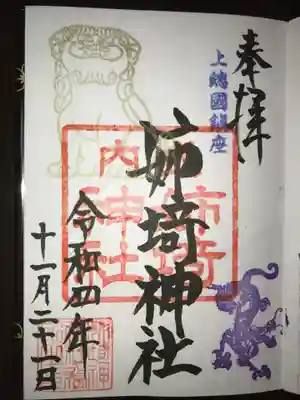 奉拝
上総國鎮座
姉埼神社
令和四年
十一月二十一日